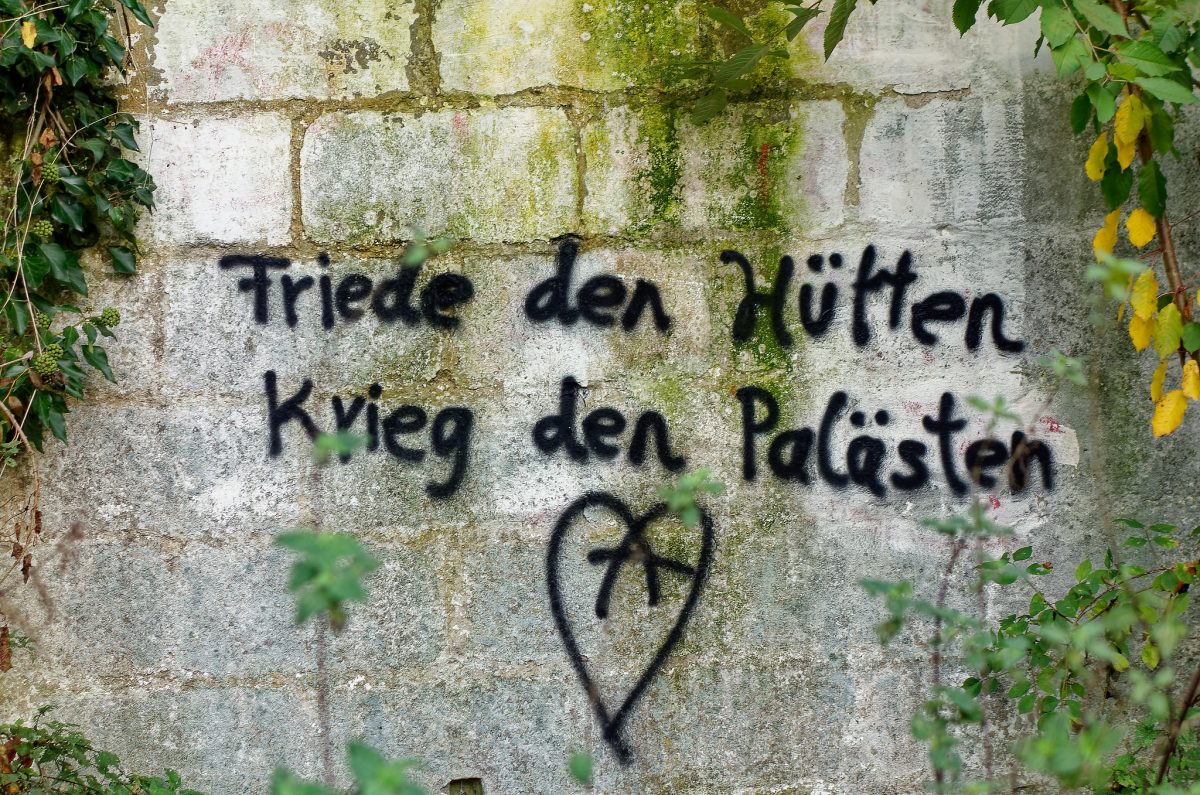 Friede den Hütten
Krieg den Palästen